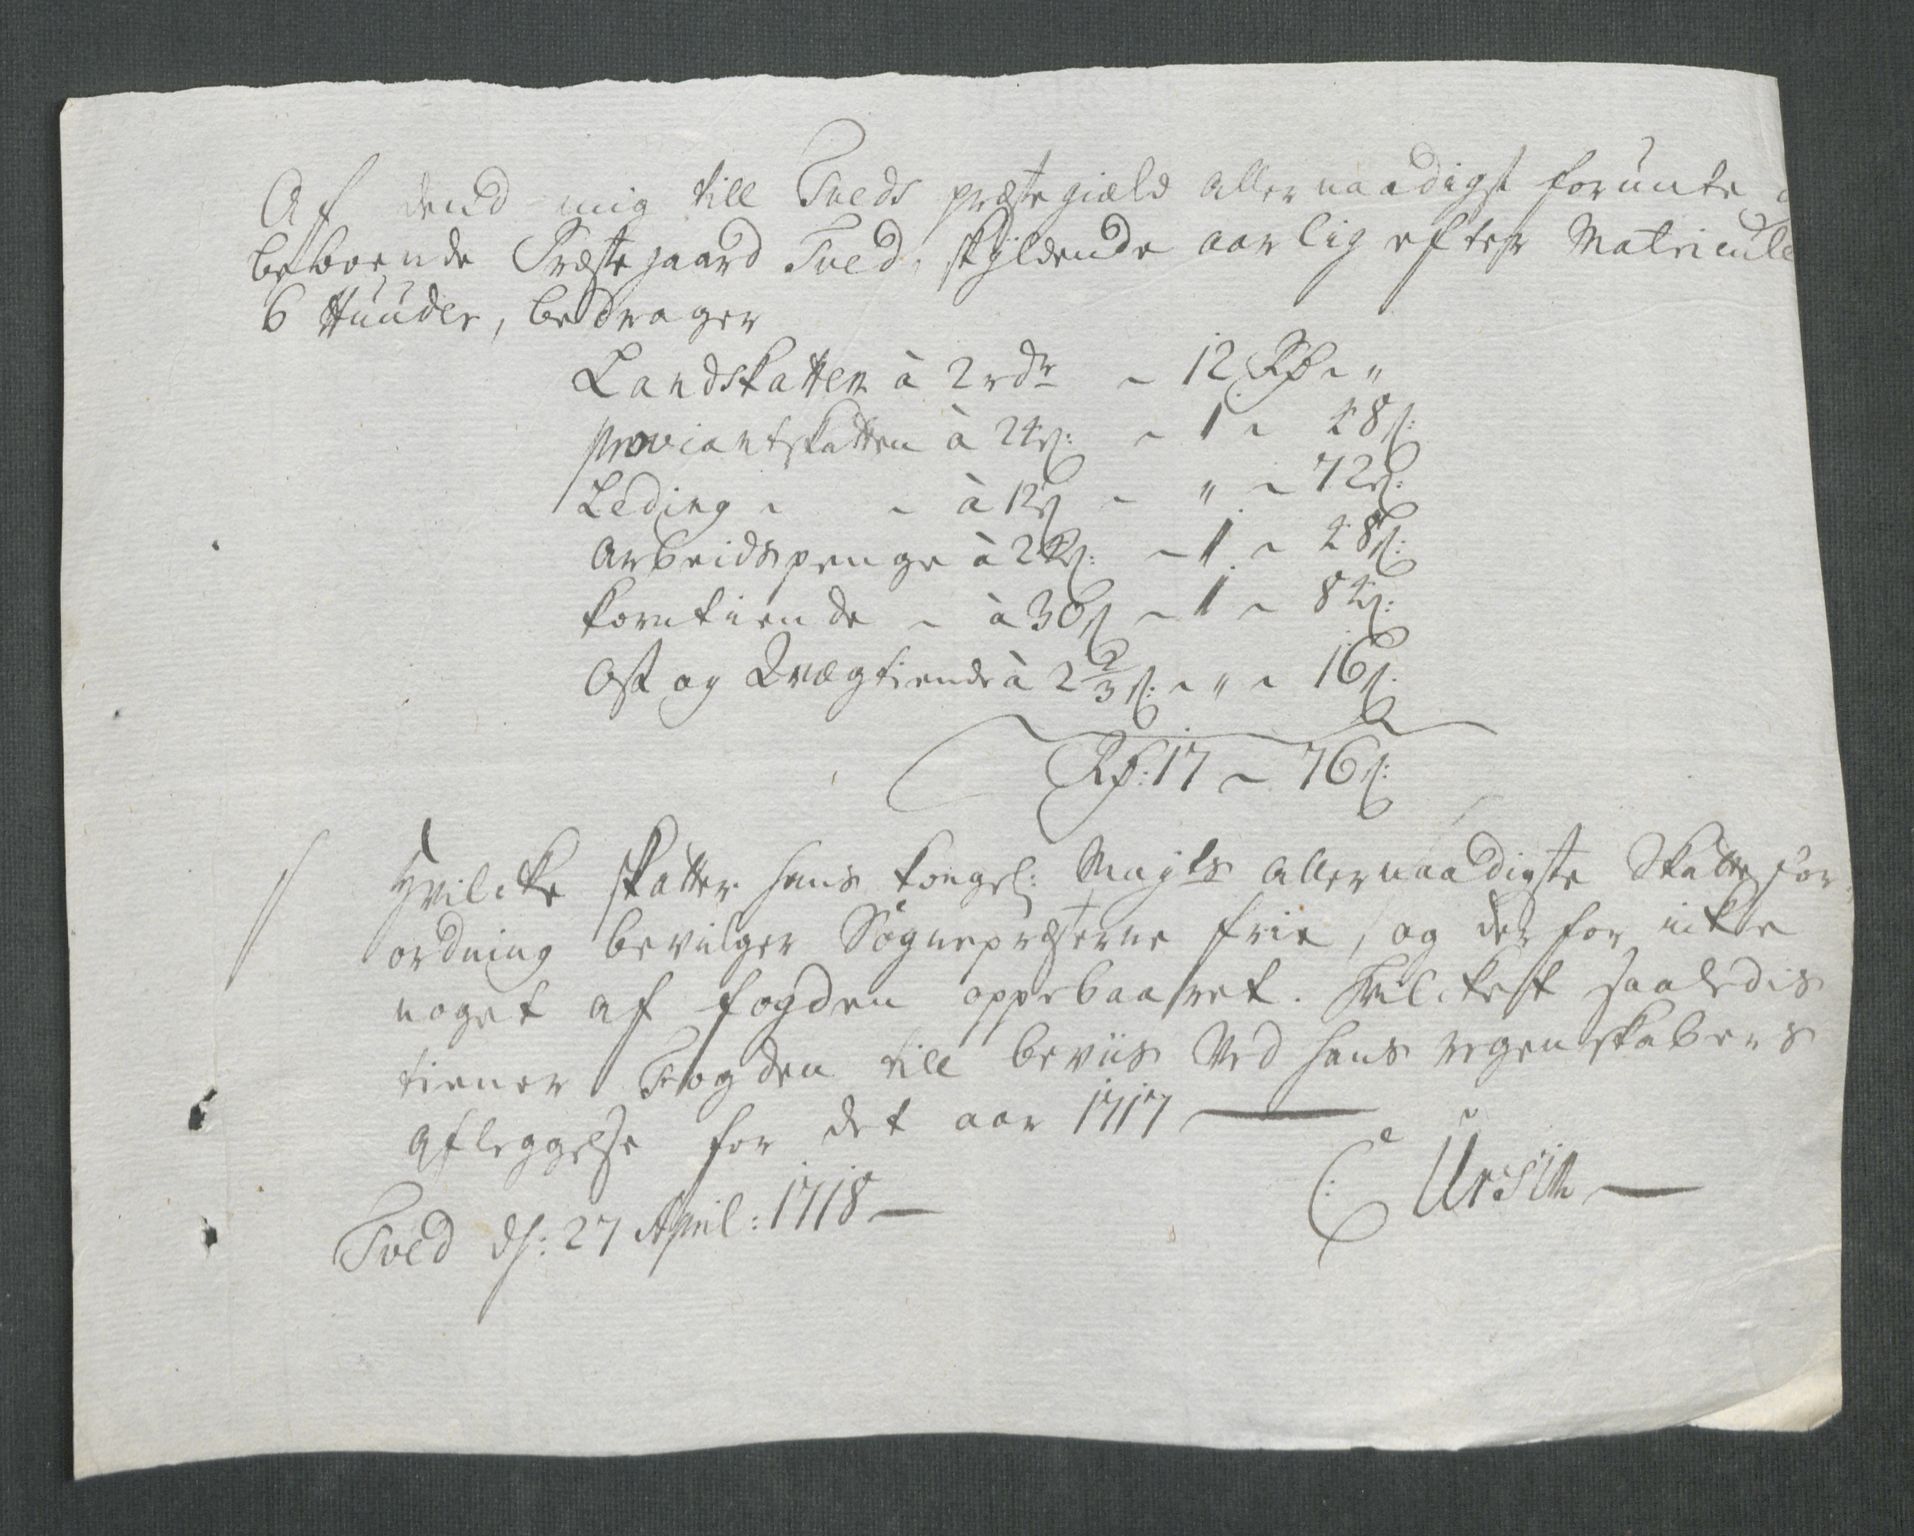 Af dend mig till Tveds præstegiæld allernaadigst forunte
beboende Præstegaard Tved, skÿldende aarlig efter Matricule
6 Huuder, bedrager
Landskatten à 2 rdr ~ 12 Rd ~ "
Proviantskatten à 24 s: ~ 1 ~ 48 s:
Leding ~ ~ à 12 s ~ " ~ 72 s:
Arbeidspenge à 24 s: ~ 1 ~ 48 s:
Korntiende ~ à 30 s ~ 1 ~ 84 s:
Ost og Qvægtiende à 2 2/3 s: ~ " ~ 16 s:
Rd: 17 ~ 76 s:
Hvilcke skatter hans kongel: Mayts allernaadigste Skatte for-
ordning bevilger Sognepræsterne frie, og derfor icke
noget af fogden oppebaaret. Hvilcket saaledis
tiener Fogden till beviis Ved hans regenskabers
aflæggelse for det aar 1717
Tved ds: 27 April: 1718
C: Ursin